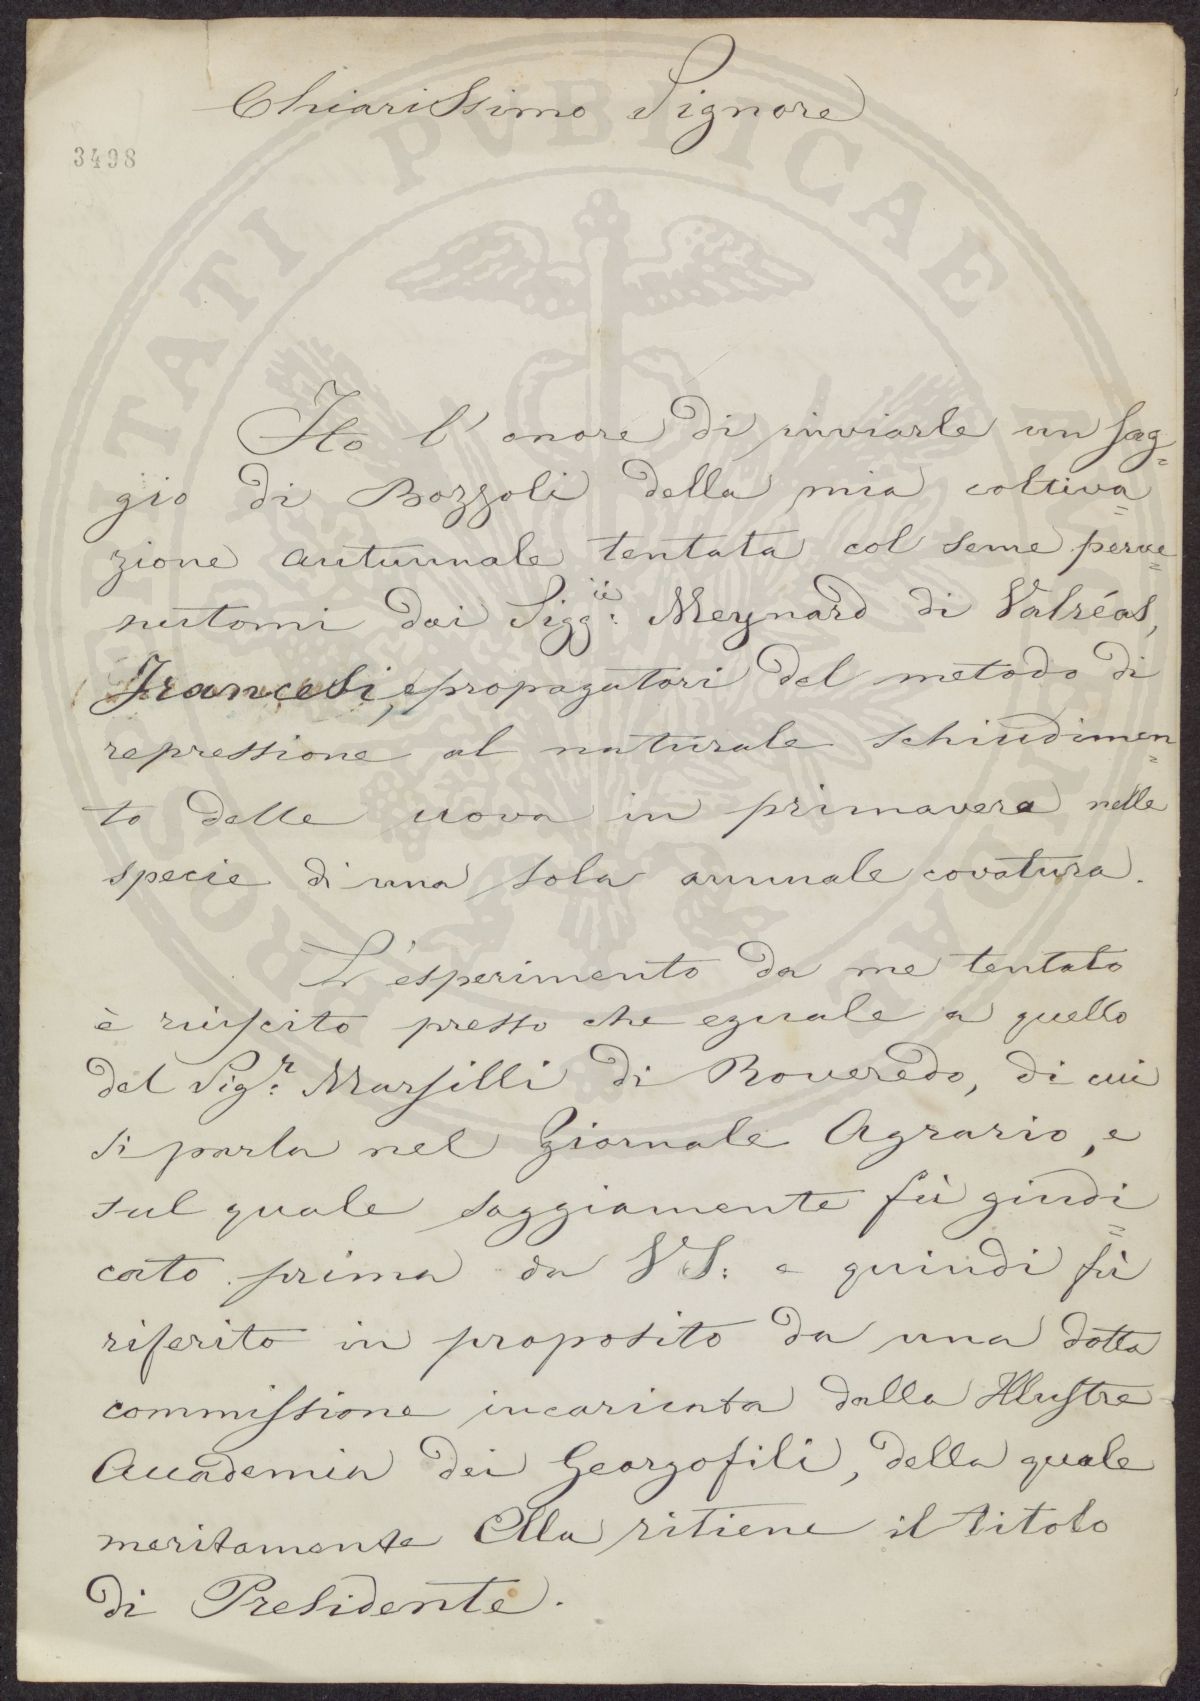 Chiarissimo Signore
3498
Ho l'onore di inviarle un sag=
gio di Bozzoli della mia coltiva=
zione autunnale tentata col seme perve=
nutomi dai Sigg.ri: Meynard di Valréas,
Francesi, e propagatori del metodo di
repressione al naturale schiudimen=
to delle uova in primavera nelle
specie di una sola annuale covatura.
L'esperimento da me tentato
è riuscito presso che eguale a quello
del Sig.r: Marsilli di Roveredo, di cui
si parla nel Giornale Agrario, e
sul quale saggiamente fù giudi=
cato prima da VS: e quindi fù
riferito in proposito da una dotta
commissione incaricata dalla Illustre
Accademia dei Georgofili, della quale
meritamente Ella ritiene il titolo
di Presidente.
PROSPERITATI PUBLICAE AUGENDAE